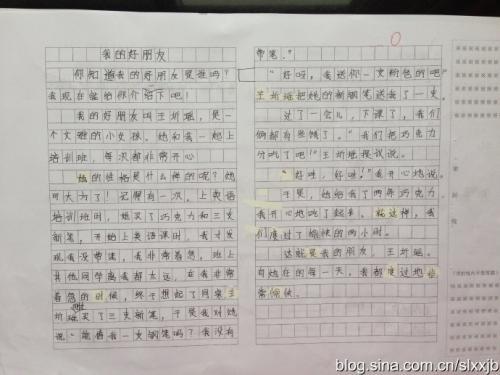 我的好朋友
你知道我的好朋友是谁吗？
我现在就给你介绍下吧！
我的好朋友叫王圻瑶，是一
个文雅的小女孩。她和我一起上
培训班，每次都非常开心
她的性格是什么样的呢？她
可大方了！记得有一次，上英语
培训班时，她买了巧克力和三支
新笔，开始上英语课时，我才发
现我没带笔，我非常着急，班上
其他同学离我都太远，在我非常
着急的时候，终于想起了同桌王
圻瑶买了三支新笔，于是我对她
说“能借我一支钢笔吗？我没有
带笔。”
“好呀，我送你一支粉色的吧”
王圻瑶把她的新钢笔送我了一支。
过了一会儿，下课了，我们
俩都有些饿了。“我们把巧克力
分吃了吧”王圻瑶提议说。
“好哇，好哇！”我开心地说。
于是，她给我了两年巧克力。
我开心地吃了起来，就这样，我
们度过了愉快的两小时。
这就是我的朋友，王圻瑶。
有她在的每一天，我都度过地非
常愉快。
blog.sina.com.cn/slxxjb